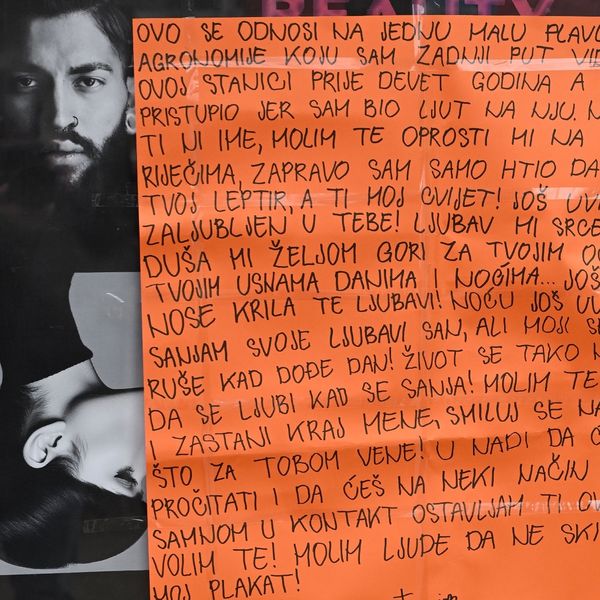 REALITY
OVO SE ODNOSI NA JEDNU MALU PLAVU
AGRONOMIJE KOJU SAM ZADNJI PUT
OVOJ STANICI PRIJE DEVET GODINA A
PRISTUPIO JER SAM BIO LJUT NA NJU.
TI NI IME, MOLIM TE OPROSTI MI NA
RIJEČIMA, ZAPRAVO SAM SAMO HTIO DA
TVOJ LEPTIR, A TI MOJ CVIJET! JOŠ
ZALJUBLJEN U TEBE! LJUBAV MI SRCE
DUŠA MI ŽELJOM GORI ZA TVOJIM
TVOJIM USNAMA DANIMA I NOĆIMA... JOŠ
NOSE KRILA TE LJUBAVI! NOĆU JOŠ
SANJAM SVOJE LJUBAVI SAN, ALI MOJI
RUŠE KAD DOĐE DAN! ŽIVOT SE TAKO
DA SE LJUBI KAD SE SANJA! MOLIM TE
I ZASTANI KRAJ MENE, SMILUJ SE
ŠTO ZA TOBOM VENE! U NADI DA
PROČITATI I DA ĆEŠ NA NEKI NAČIN
SAMNOM U KONTAKT OSTAVLJAM TI
VOLIM TE! MOLIM LJUDE DA NE
MOJ PLAKAT!